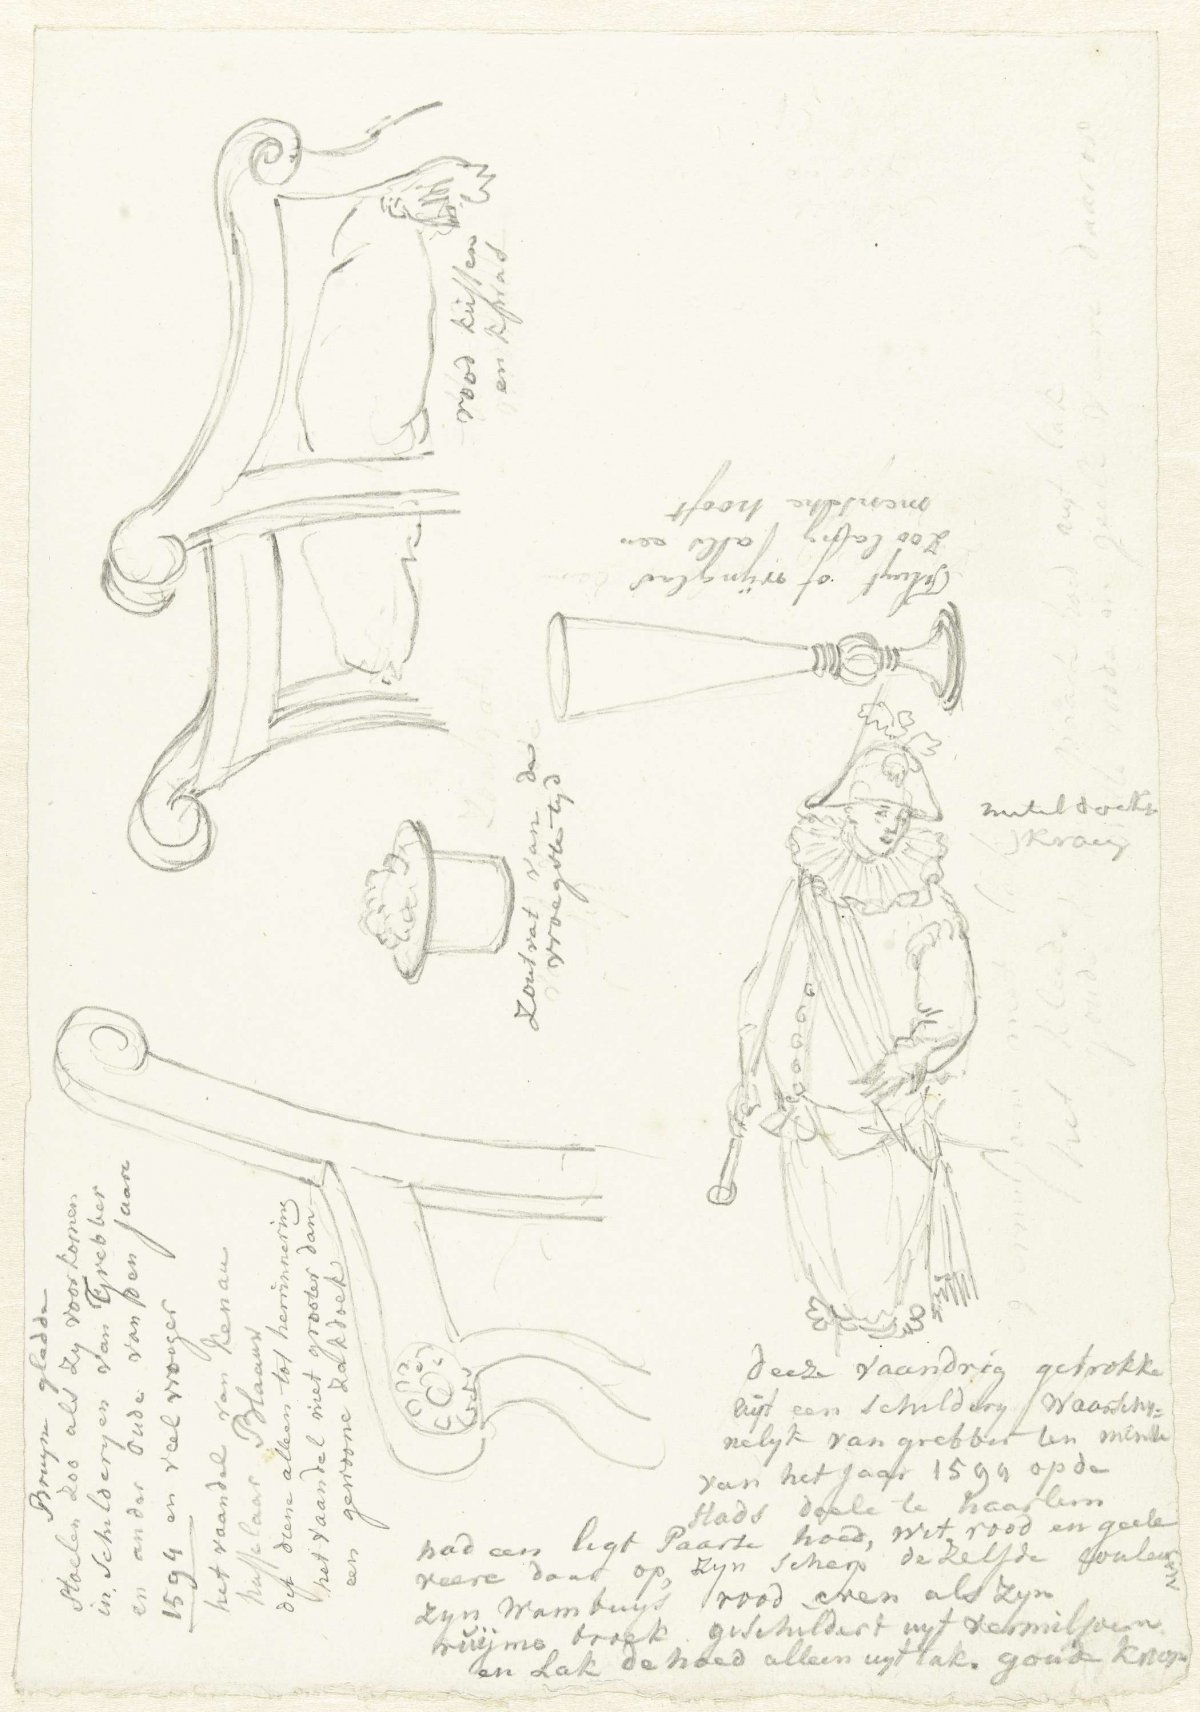 rood kussen
en kwas
fluyt of wijnglas
zoo lang als een
mensche hooft
Zoutvat van de
vroegste tijd
neteldoekse
kraag
Bruyn gladde
Stoelen zoo als zy voorkomen
in Schilderyen van Grebber
en ander oude van den Jaare
1594 en veel vroger
het vaandel van Kenau
hasselaar Blaauw
dit diene alleen tot herinnering
het vaandel niet grooter dan
een gewoone Zakdoek
deeze vaandrig getrokke
uijt een Schildery waarschy=
nelyk van grebber ten minste
van het Jaar 1594 op de
Stads doele te haarlem
had een ligt Paarse hoed, wit rood en geele
veere daar op, zyn Scherp de Zelfde couleur
zyn wambuys rood even als zyn
ruijme broek geschildert uyt vermiljoen
en Lak de hoed alleen uyt lak. goude knop